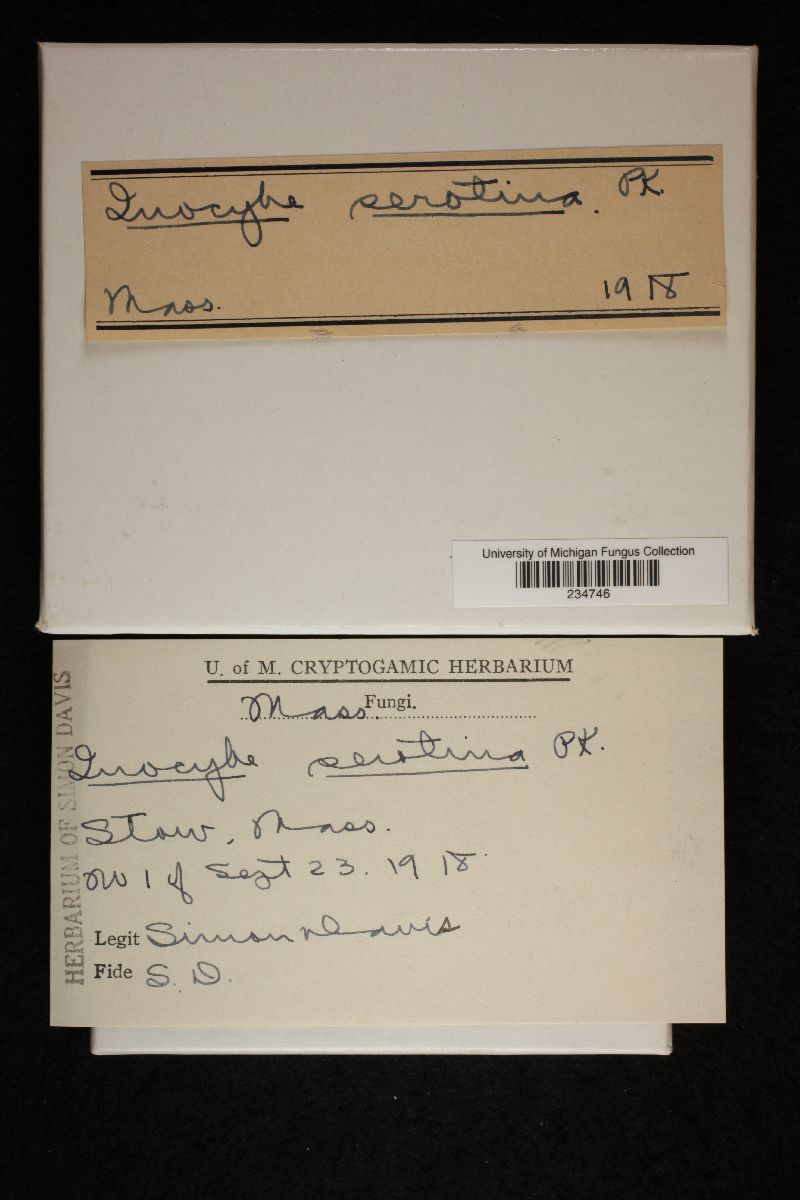 Inocybe serotina. PK.
Mass. 1918
University of Michigan Fungus Collection
234746
U. of M. CRYPTOGAMIC HERBARIUM
Mass. Fungi.
Inocybe serotina PK.
Stow, Mass.
Sept 23. 1918
Legit Simon Davis
Fide S. D.
HERBARIUM OF SIMON DAVIS